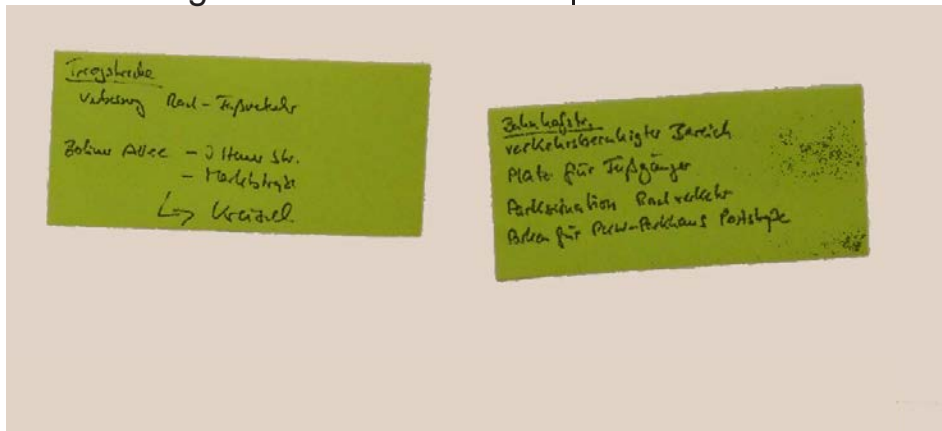 Verbesserung Rad-Fußverkehr
Allee - Str.
- Marktstraße
↳ Kreisel
Bahnhofstr.
verkehrsberuhigter Bereich
Platz für Fußgänger
Parksituation Radverkehr
Parken für PKW-Parkhaus Poststraße